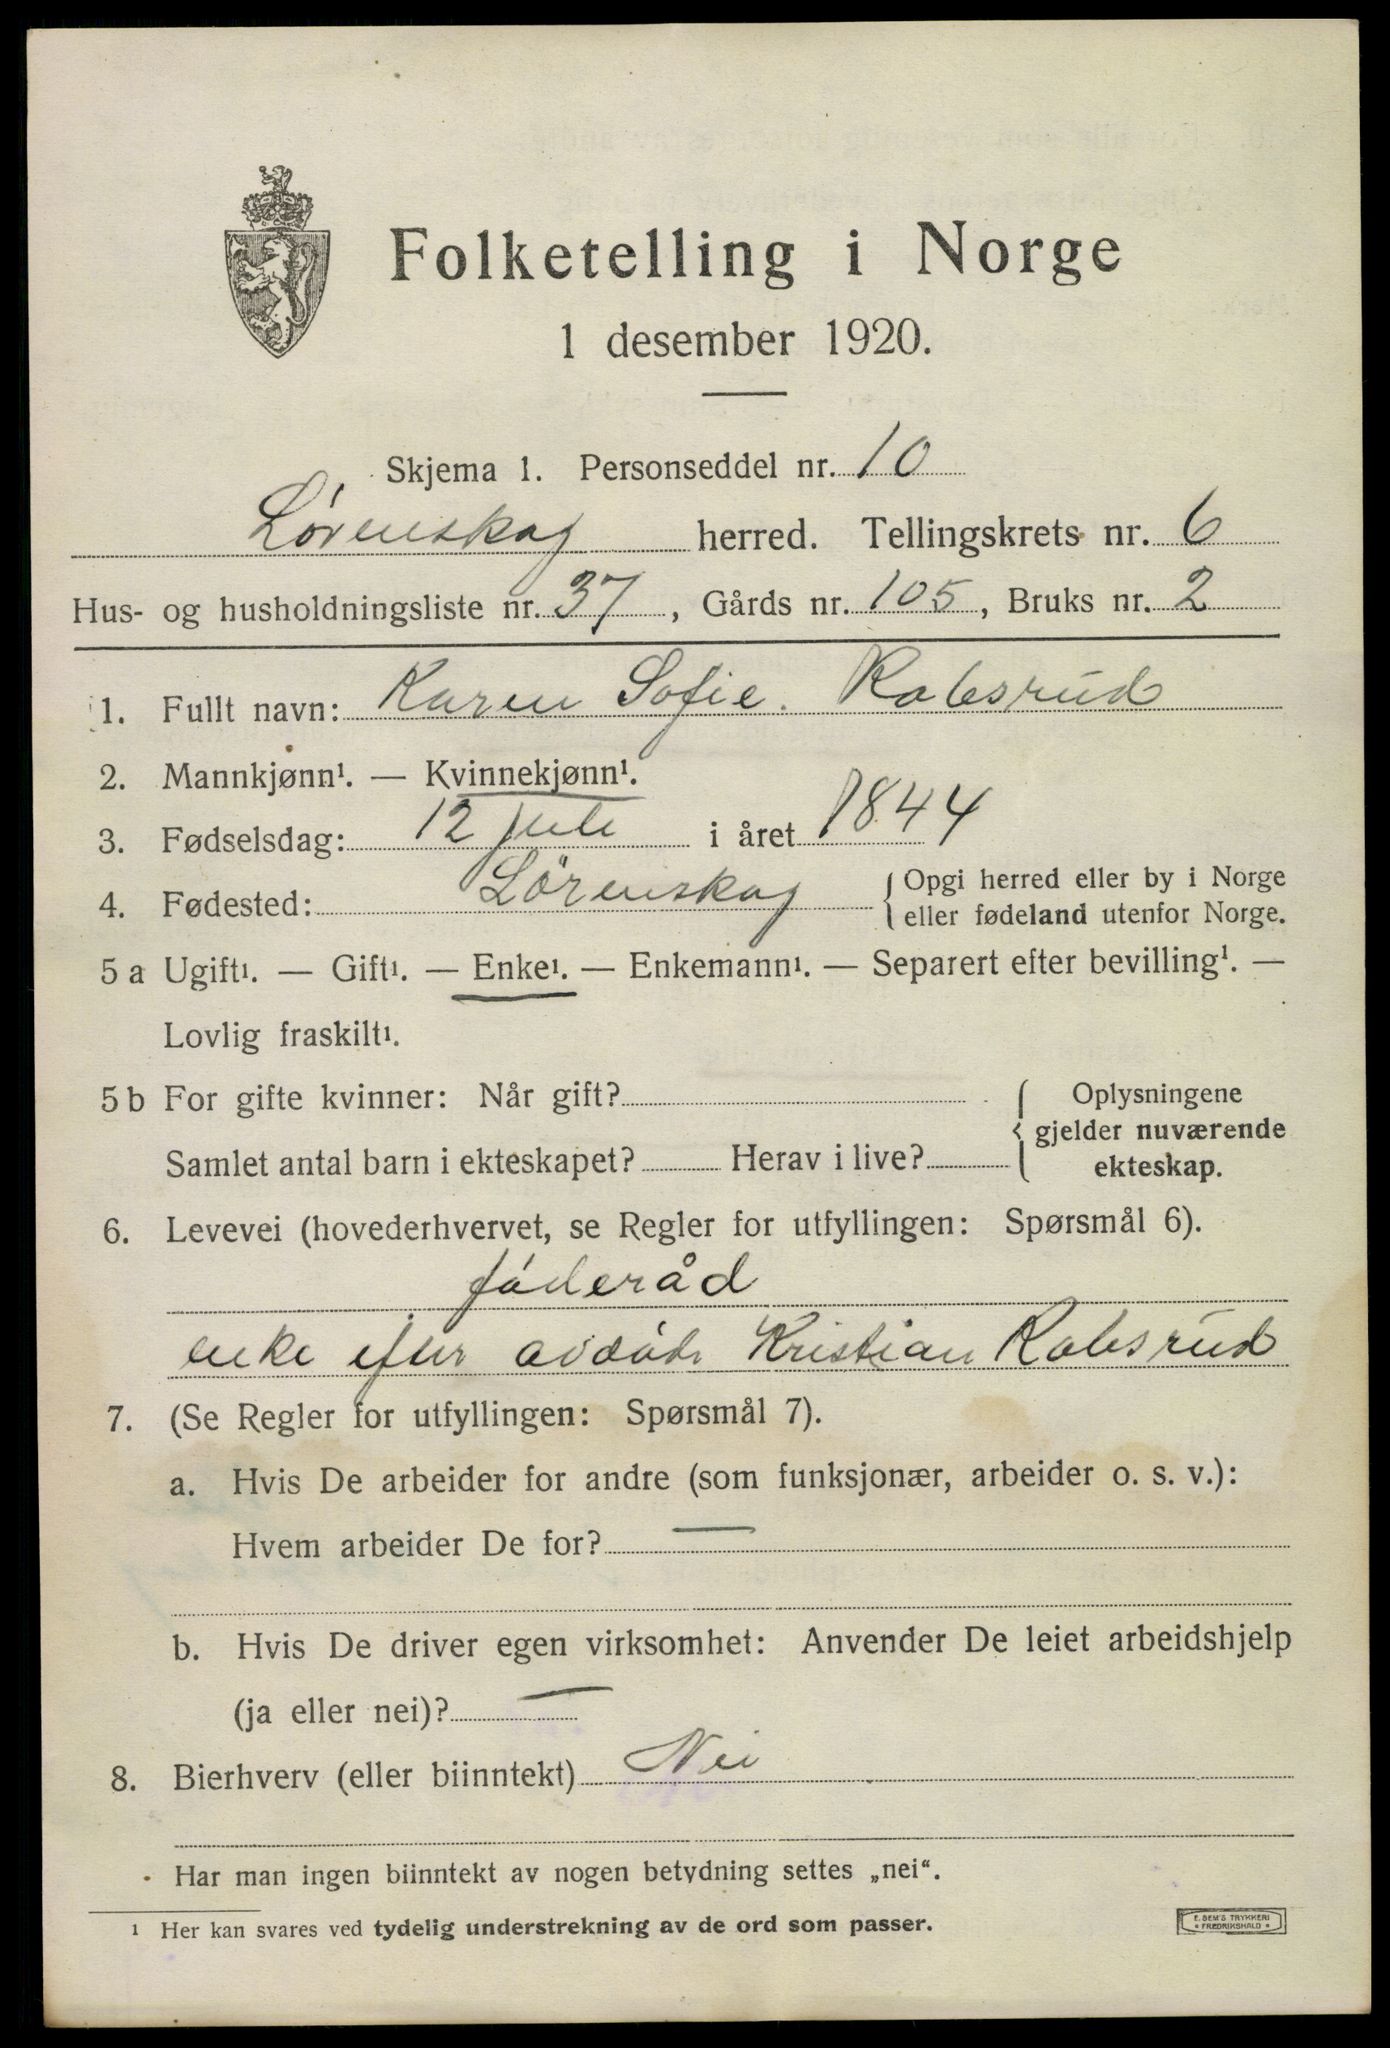 Folketelling i Norge
1 desember 1920.
Skjema 1. Personseddel nr. 10
Lørenskog herred. Tellingskrets nr. 6
Hus- og husholdningsliste nr. 37, Gårds nr. 105, Bruks nr. 2
1. Fullt navn: Karen Sofie. Robsrud
2. Mannkjønn¹. — Kvinnekjønn¹.
3. Fødselsdag: 12 juli i året 1844
4. Fødested: Lörenskog { Opgi herred eller by i Norge
eller fødeland utenfor Norge.
5 a Ugift¹. — Gift¹. — Enke¹. — Enkemann¹. — Separert efter bevilling¹. —
Lovlig fraskilt¹.
5 b For gifte kvinner: Når gift? { Oplysningene
gjelder nuværende
Samlet antal barn i ekteskapet? Herav i live? ekteskap.
6. Levevei (hovederhvervet, se Regler for utfyllingen: Spørsmål 6).
föderåd
enke efter avdöde Kristian Robsrud
7. (Se Regler for utfyllingen: Spørsmål 7).
a. Hvis De arbeider for andre (som funksjonær, arbeider o. s. v.):
Hvem arbeider De for? —
b. Hvis De driver egen virksomhet: Anvender De leiet arbeidshjelp
(ja eller nei)? —
8. Bierhverv (eller biinntekt) Nei
Har man ingen biinntekt av nogen betydning settes „nei“.
¹ Her kan svares ved tydelig understrekning av de ord som passer.
E. SEM'S TRYKKERI
• FREDRIKSHALD •